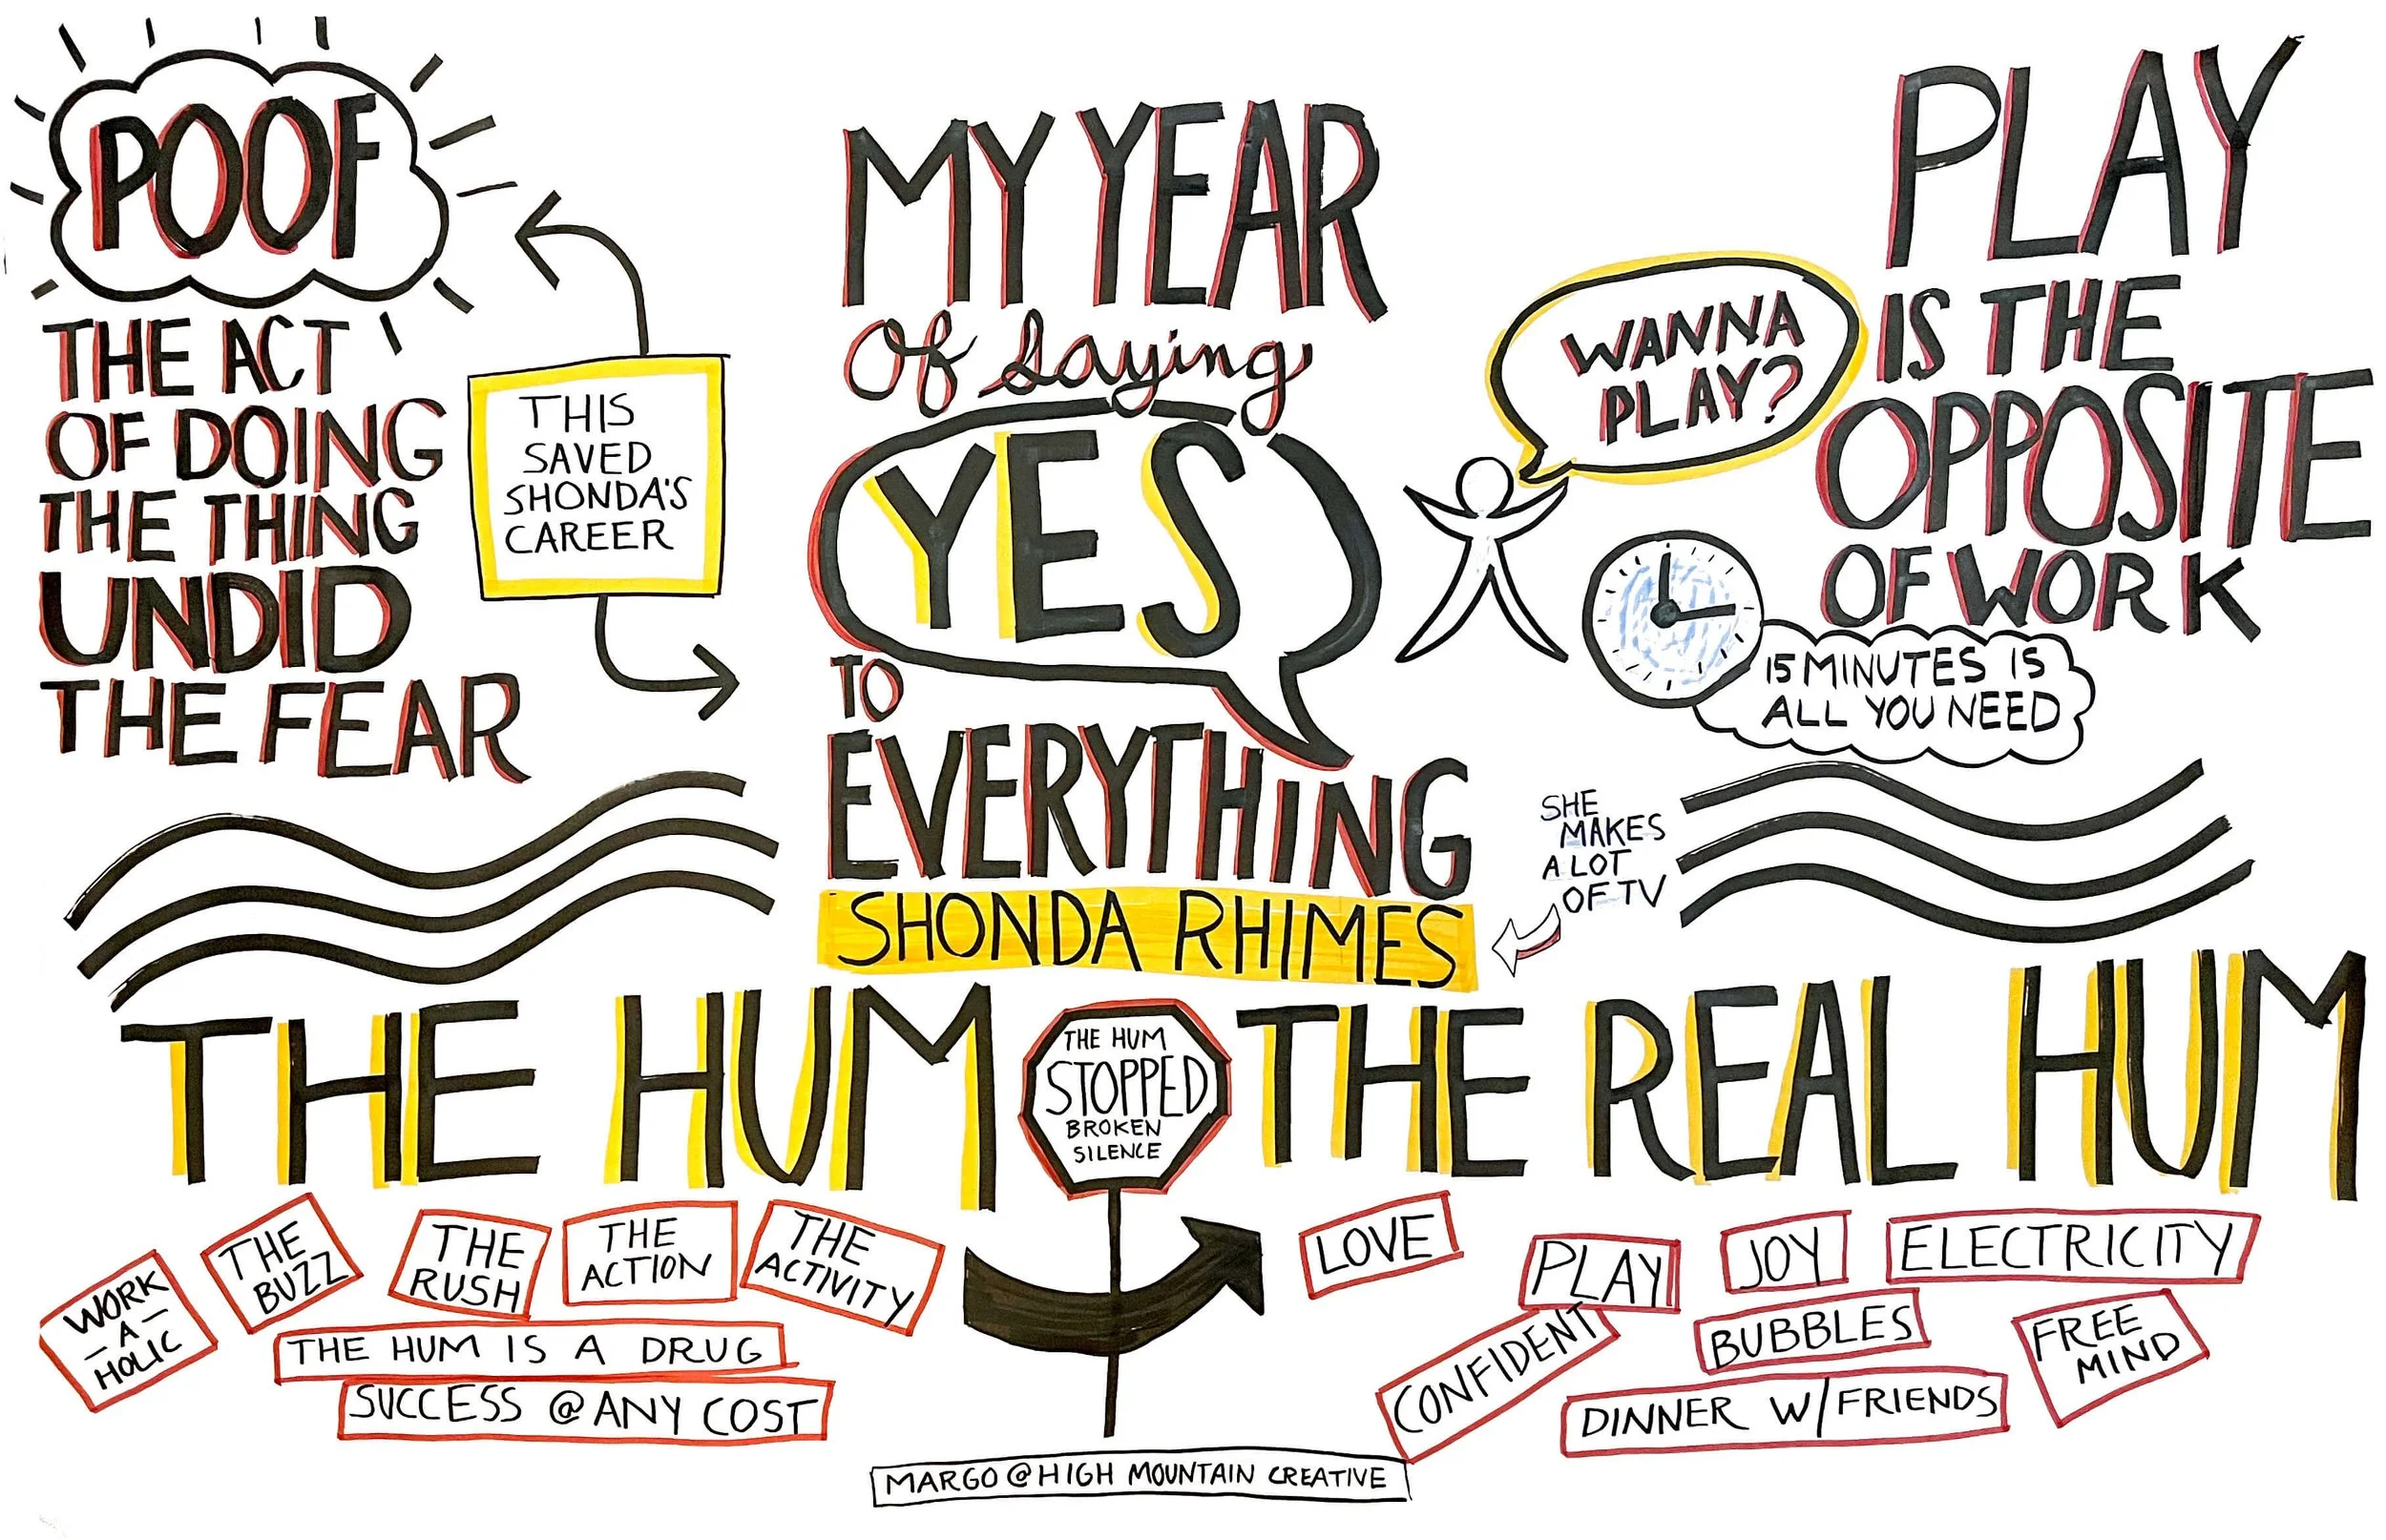 POOF
THE ACT
OF DOING
THE THING
UNDID
THE FEAR
THIS
SAVED
SHONDA'S
CAREER
MY YEAR
Of Saying
YES
TO
EVERYTHING
SHONDA RHIMES
SHE
MAKES
A LOT
OF TV
WANNA
PLAY?
PLAY
IS THE
OPPOSITE
OF WORK
15 MINUTES IS
ALL YOU NEED
THE HUM
THE HUM
STOPPED
BROKEN
SILENCE
THE REAL HUM
WORK
- A -
HOLIC
THE
BUZZ
THE
RUSH
THE
ACTION
THE
ACTIVITY
THE HUM IS A DRUG
SUCCESS @ ANY COST
LOVE
PLAY
JOY
ELECTRICITY
CONFIDENT
BUBBLES
FREE
MIND
DINNER W/FRIENDS
MARGO @ HIGH MOUNTAIN CREATIVE